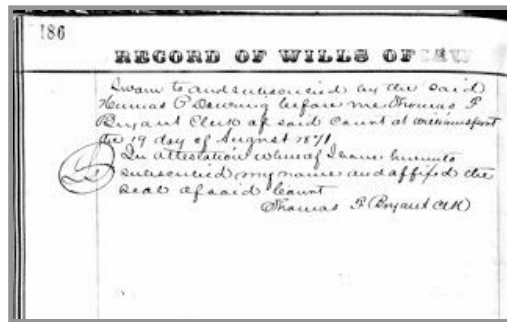 186
RECORD OF WILLS OF
Sworn to and subscribed by the said
Thomas P Dewing before me Thomas F
Bryant Clerk of said Count at Williamsport
the 19 day of August 1871
In attestation whereof I have hereunto
subscribed my name and affixd the
seal of said Count
Thomas F Bryant Clk